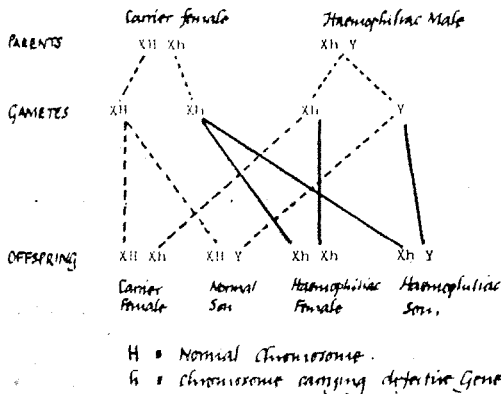 Carrier female Haemophiliac Male
PARENTS XH Xh Xh Y
GAMETES XH Xh Xh Y
OFFSPRING XH Xh XH Y Xh Xh Xh Y
Carrier Normal Haemophiliac Haemophiliac
Female Son Female Son.
H = Normal Chromosome.
h = Chromosome carrying defective Gene